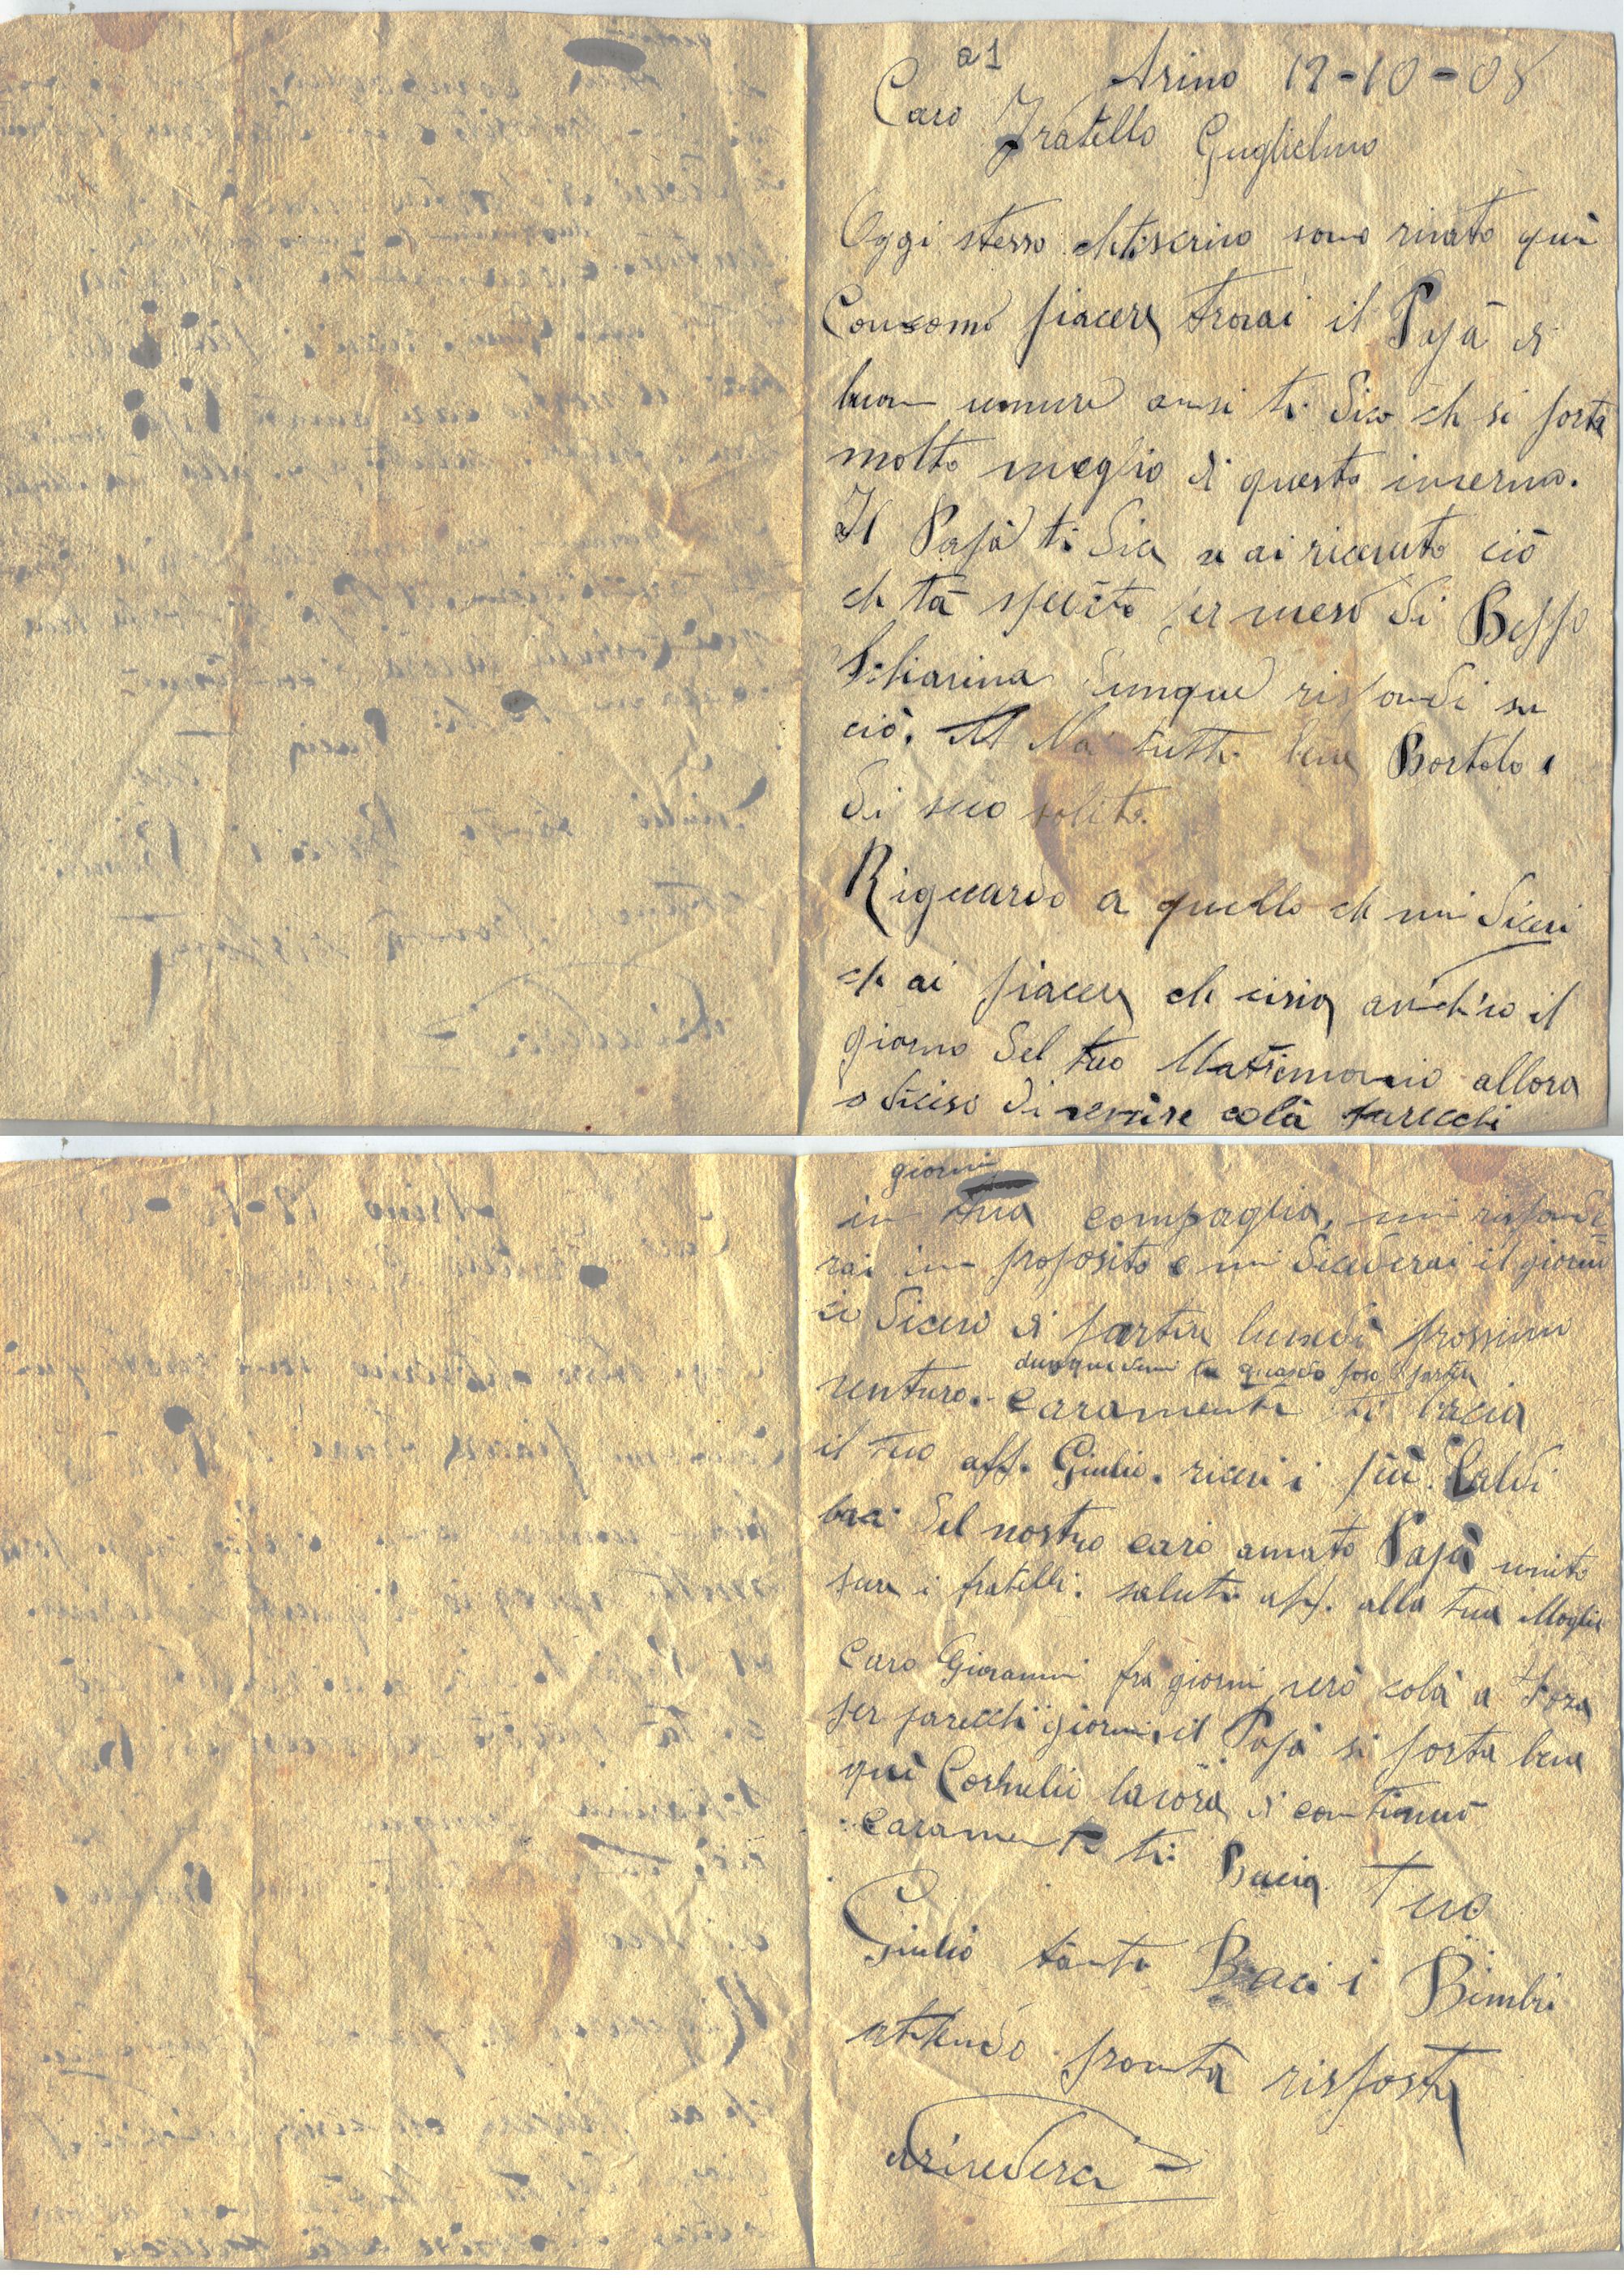 a1
Arino 12-10-08
Caro Fratello Guglielmo
Oggi stesso chtiscrivo sono rivato qui
Consomo piacere trovai il Papà di
buon umure ansi ti dico ch si porta
molto meglio di questo inverno.
Il Papà ti dice se ai ricevuto ciò
ch ta spedito per meso di Beppo
dunque rispondi su
ciò. Na tutti bene Bortolo e
di seco solito.
Riguardo a quello ch mi dicevi
ch ai piacere ch cisia anch'io il
giorno del tuo Matrimonio allora
o deciso di venire colà parecchi
giorni
in tua compaglia, mi risponde=
rai in proposito e mi deciderai il giorno
io decisi di partire lunedi prossimo
dunque dimi tu quando poso partire
venturo. - caramente ti bacia
il tuo aff. Giulio. ricevi i più Caldi
baci del nostro caro amato Papà unito
pure i fratelli. saluti aff. alla tua Moglie
Caro Giovanni fra giorni verò colà a
per parecchi giorni, il Papà si porta bene
quì Cornelio lavora di continuo
caramente ti Bacia Tuo
Giulio tanti Baci i Bimbi
attendo pronta risposta
arivederci